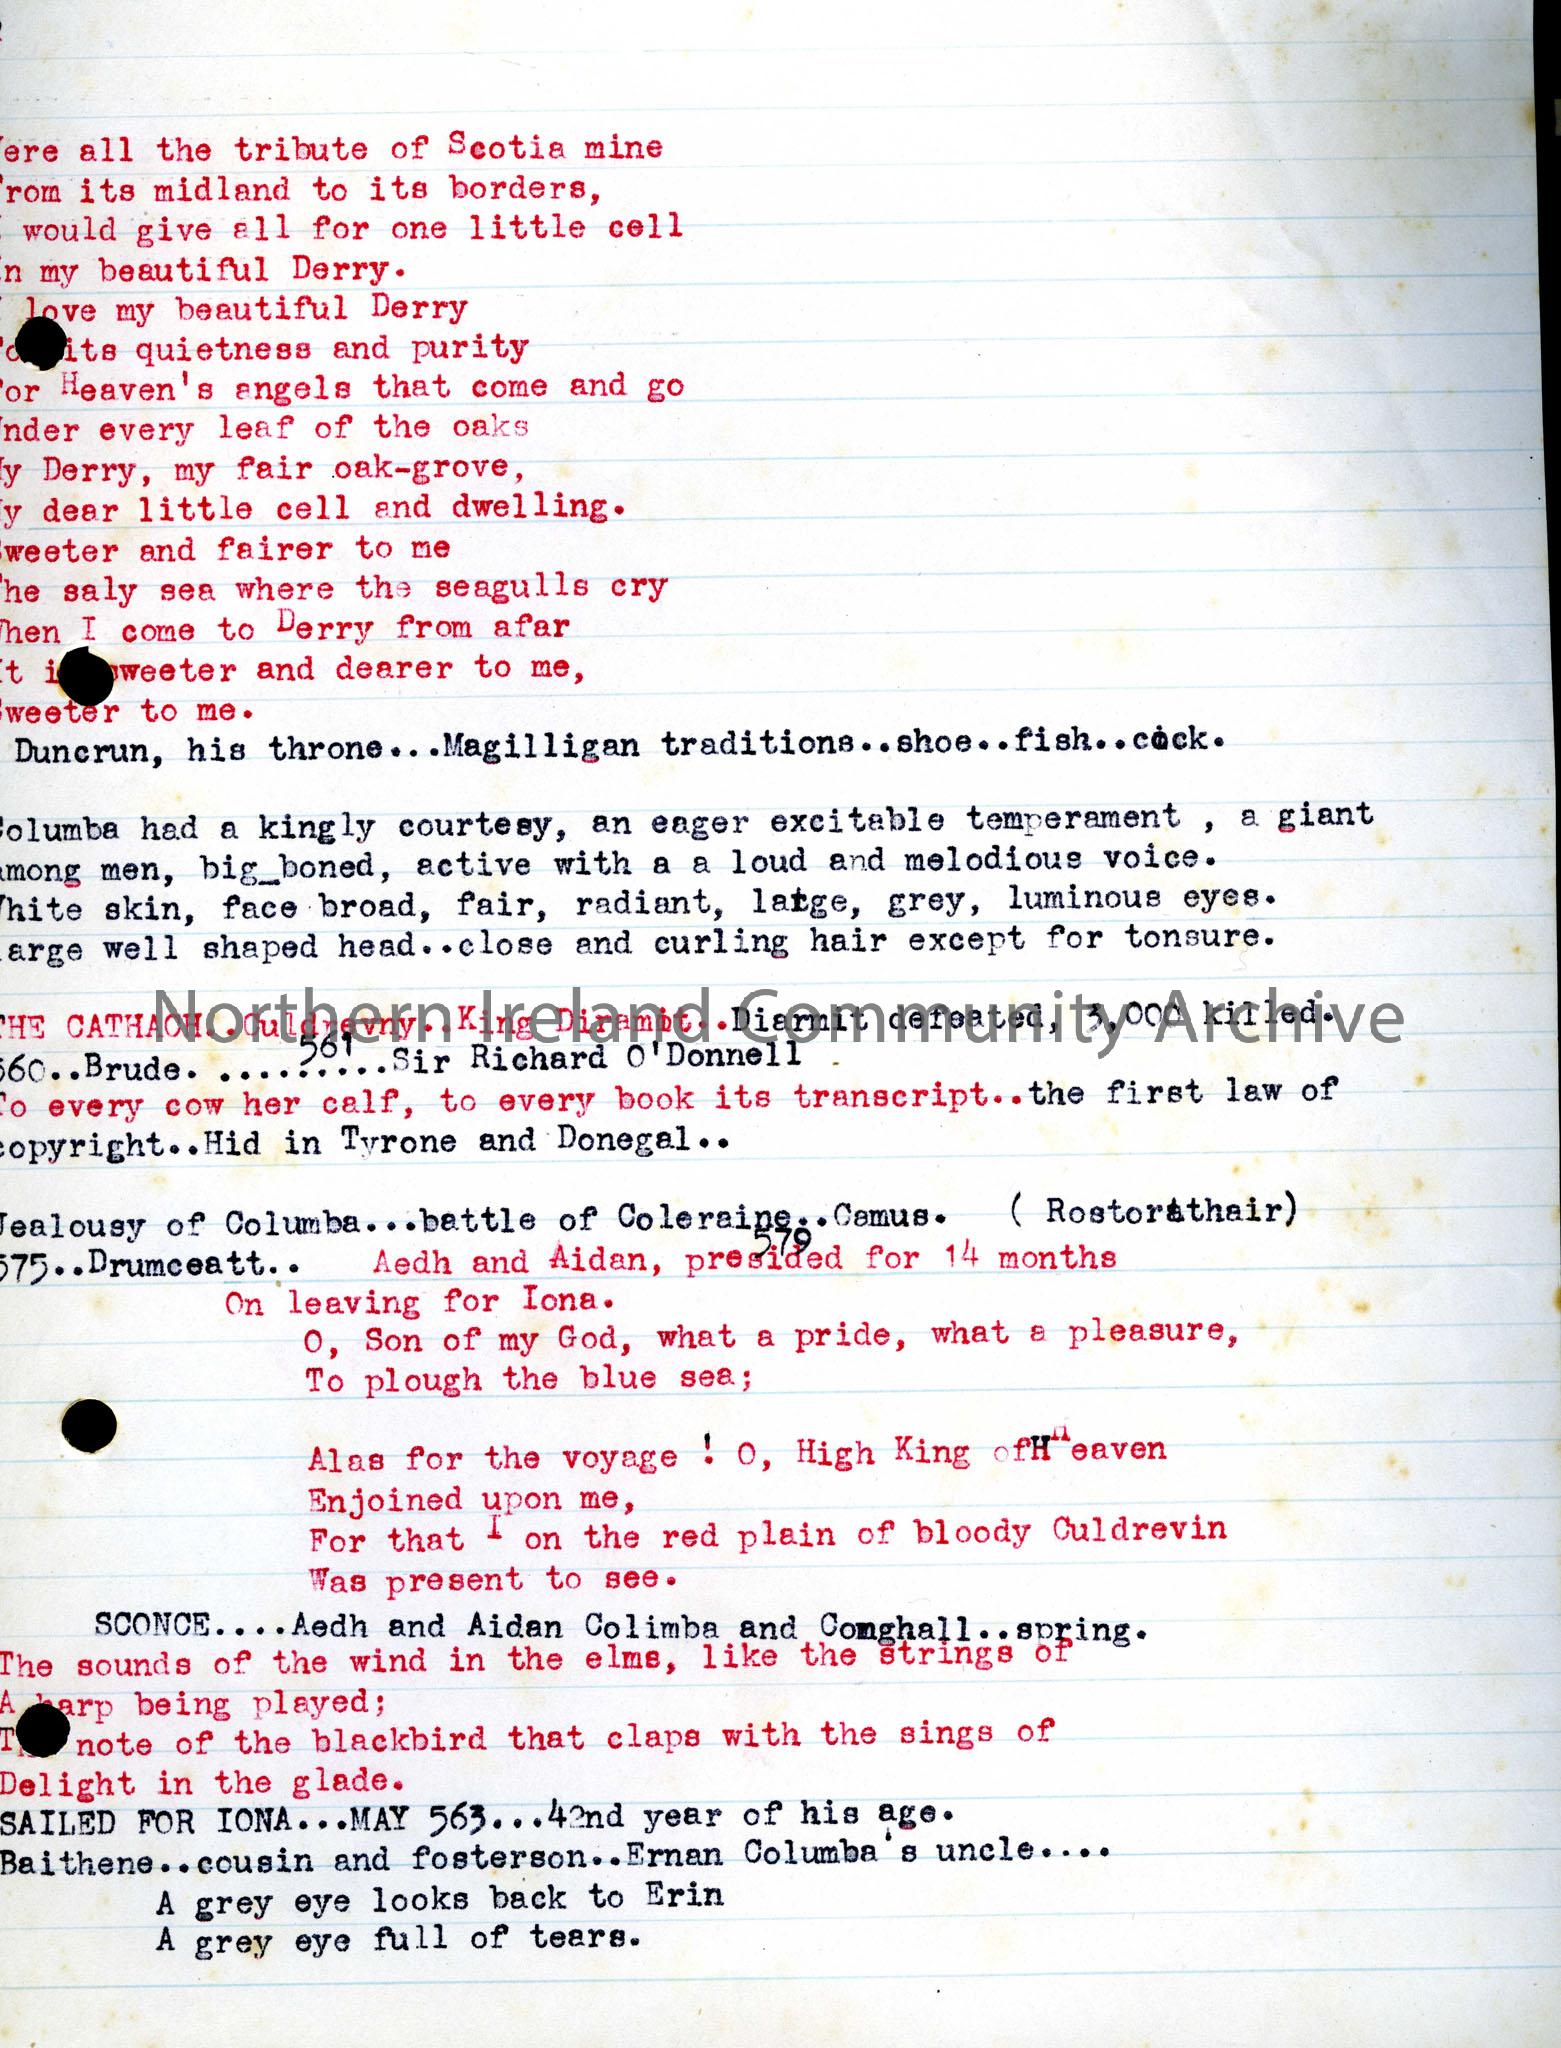 ere all the tribute of Scotia mine
rom its midland to its borders,
would give all for one little cell
n my beautiful Derry.
love my beautiful Derry
its quietness and purity
or Heaven's angels that come and go
nder every leaf of the oaks
y Derry, my fair oak-grove,
y dear little cell and dwelling.
weeter and fairer to me
he saly sea where the seagulls cry
hen I come to Derry from afar
t i sweeter and dearer to me,
weeter to me.
Duncrun, his throne...Magilligan traditions..shoe..fish..cock.
olumba had a kingly courtesy, an eager excitable temperament , a giant
mong men, big_boned, active with a a loud and melodious voice.
hite skin, face broad, fair, radiant, large, grey, luminous eyes.
arge well shaped head..close and curling hair except for tonsure.
THE CATHACH..Culdrevny..King Diramit..Diarmit defeated, 3,000 killed.
561
560..Brude. .........Sir Richard O'Donnell
To every cow her calf, to every book its transcript..the first law of
copyright..Hid in Tyrone and Donegal..
Jealousy of Columba...battle of Coleraine..Camus. ( Rostorathair)
579
575..Drumceatt.. Aedh and Aidan, presided for 14 months
On leaving for Iona.
O, Son of my God, what a pride, what a pleasure,
To plough the blue sea;
Alas for the voyage ! O, High King of Heaven
Enjoined upon me,
For that I on the red plain of bloody Culdrevin
Was present to see.
SCONCE....Aedh and Aidan Colimba and Comghall..spring.
The sounds of the wind in the elms, like the strings of
A harp being played;
T note of the blackbird that claps with the sings of
Delight in the glade.
SAILED FOR IONA...MAY 563...42nd year of his age.
Baithene..cousin and fosterson..Ernan Columba's uncle....
A grey eye looks back to Erin
A grey eye full of tears.
Northern Ireland Community Archive